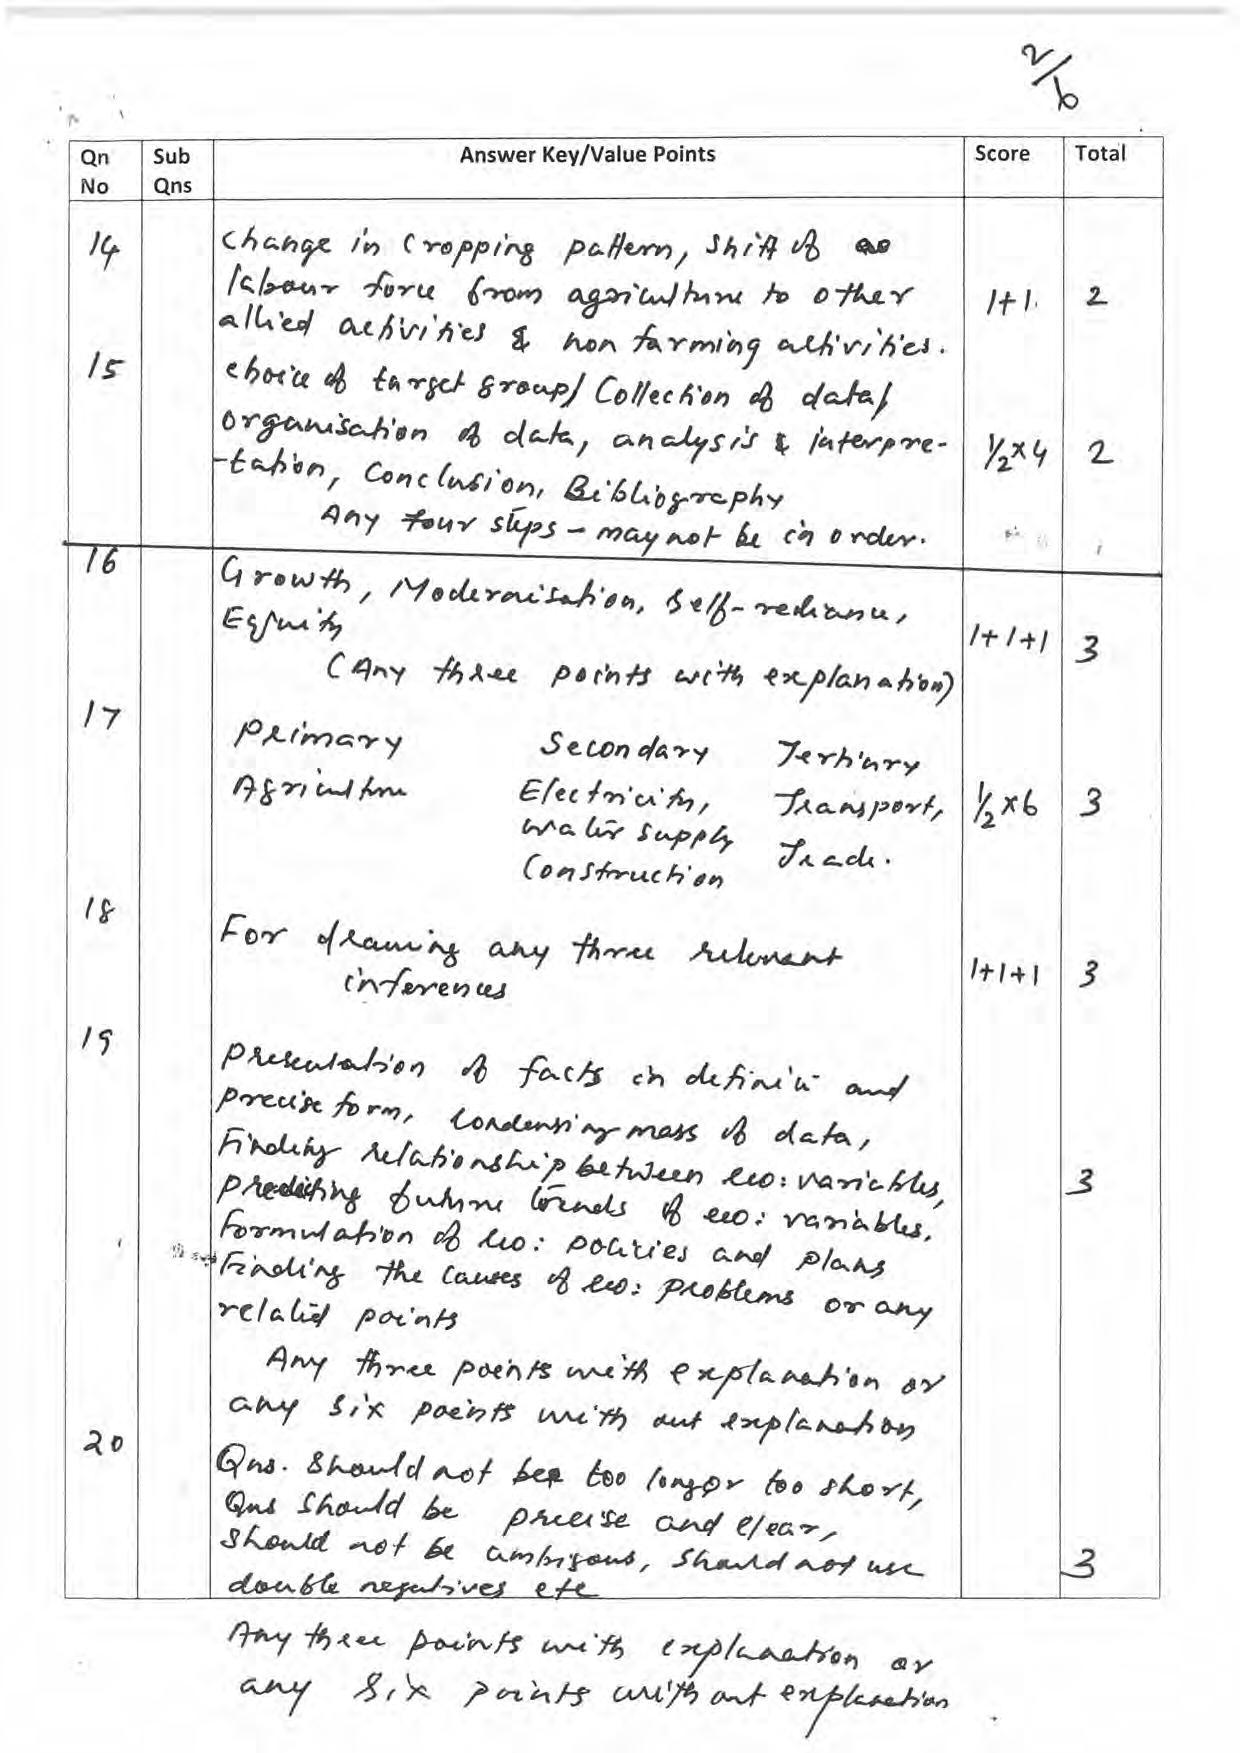 2/6
Qn No
Sub Qns
Answer Key/Value Points
Score
Total
14
change in Cropping pattern, shift of
labour force from agriculture to other
allied activities & non farming activities.
1+1
2
15
choice of target group/ Collection of data/
organisation of data, analysis & interpre-
-tation, Conclusion, Bibliography
½×4
2
Any four steps – may not be in order.
16
Growth, Modernisation, Self-reliance,
Equity
1+1+1
3
(Any three points with explanation)
17
Primary Secondary Tertiary
Agriculture Electricity, Transport,
water supply Trade.
Construction
½×6
3
18
For drawing any three relevant
inferences
1+1+1
3
19
Presentation of facts in definite and
precise form, Condensing mass of data,
Finding relationship between eco: variables,
predicting future trends of eco: variables.
formulation of eco: policies and plans
Finding the causes of eco: problems or any
related points
3
Any three points with explanation or
any six points with out explanation
20
Qns. should not be too long or too short,
Qns should be precise and clear,
should not be ambigous, should not use
double negatives etc
3
Any three points with explanation or
any six points without explanation